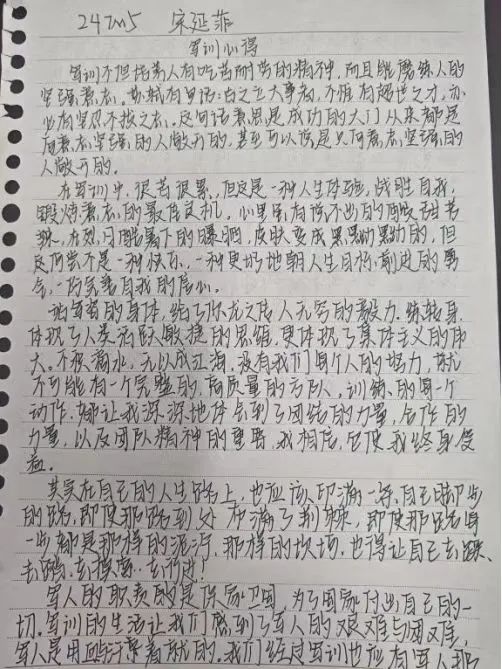 247215 宋延菲
军训心得
军训不但培养人有吃苦耐劳的精神,而且能磨练人的
坚强意志。苏轼有句话:古之立大事者,不惟有超世之才,亦
必有坚忍不拔之志。这句话意思是成功的大门从来都是
向意志坚强的人敞开的,甚至可以说是只向意志坚强的
人敞开的。
在军训中,很苦很累,但这是一种人生体验,战胜自我,
锻炼意志的最佳良机。心里虽有说不出的酸甜苦
辣,在烈日酷暑下的曝晒,皮肤变成黑黝黝的,但
这何尝不是一种快乐,一种更好地朝人生目标前进的勇
气,一份完善自我的信心。
站军姿的身体,给了你龙之传人无穷的毅力。练转身,
体现了人类活跃敏捷的思维,更体现了集体主义的伟
大。不积滴水,无以成江海,没有我们每个人的努力,就
不可能有一个完整的,高质量的方队。训练的每一个
动作,都让我深深地体会到了团结的力量,合作的
力量,以及团队精神的重要,我相信,它使我终身受
益。
其实在自己的人生路上,也应该印满一条自己踏步
的路,即使那路到处布满了荆棘,即使那路每
一步都是那样的泥泞,那样的坎坷。也得让自己去踩、
去踏、去摸索、去行进!
军人的职责的是保家卫国,为了国家付出自己的一
切。军训的生活让我们感到了军人的艰难与困难,
军人是用血汗